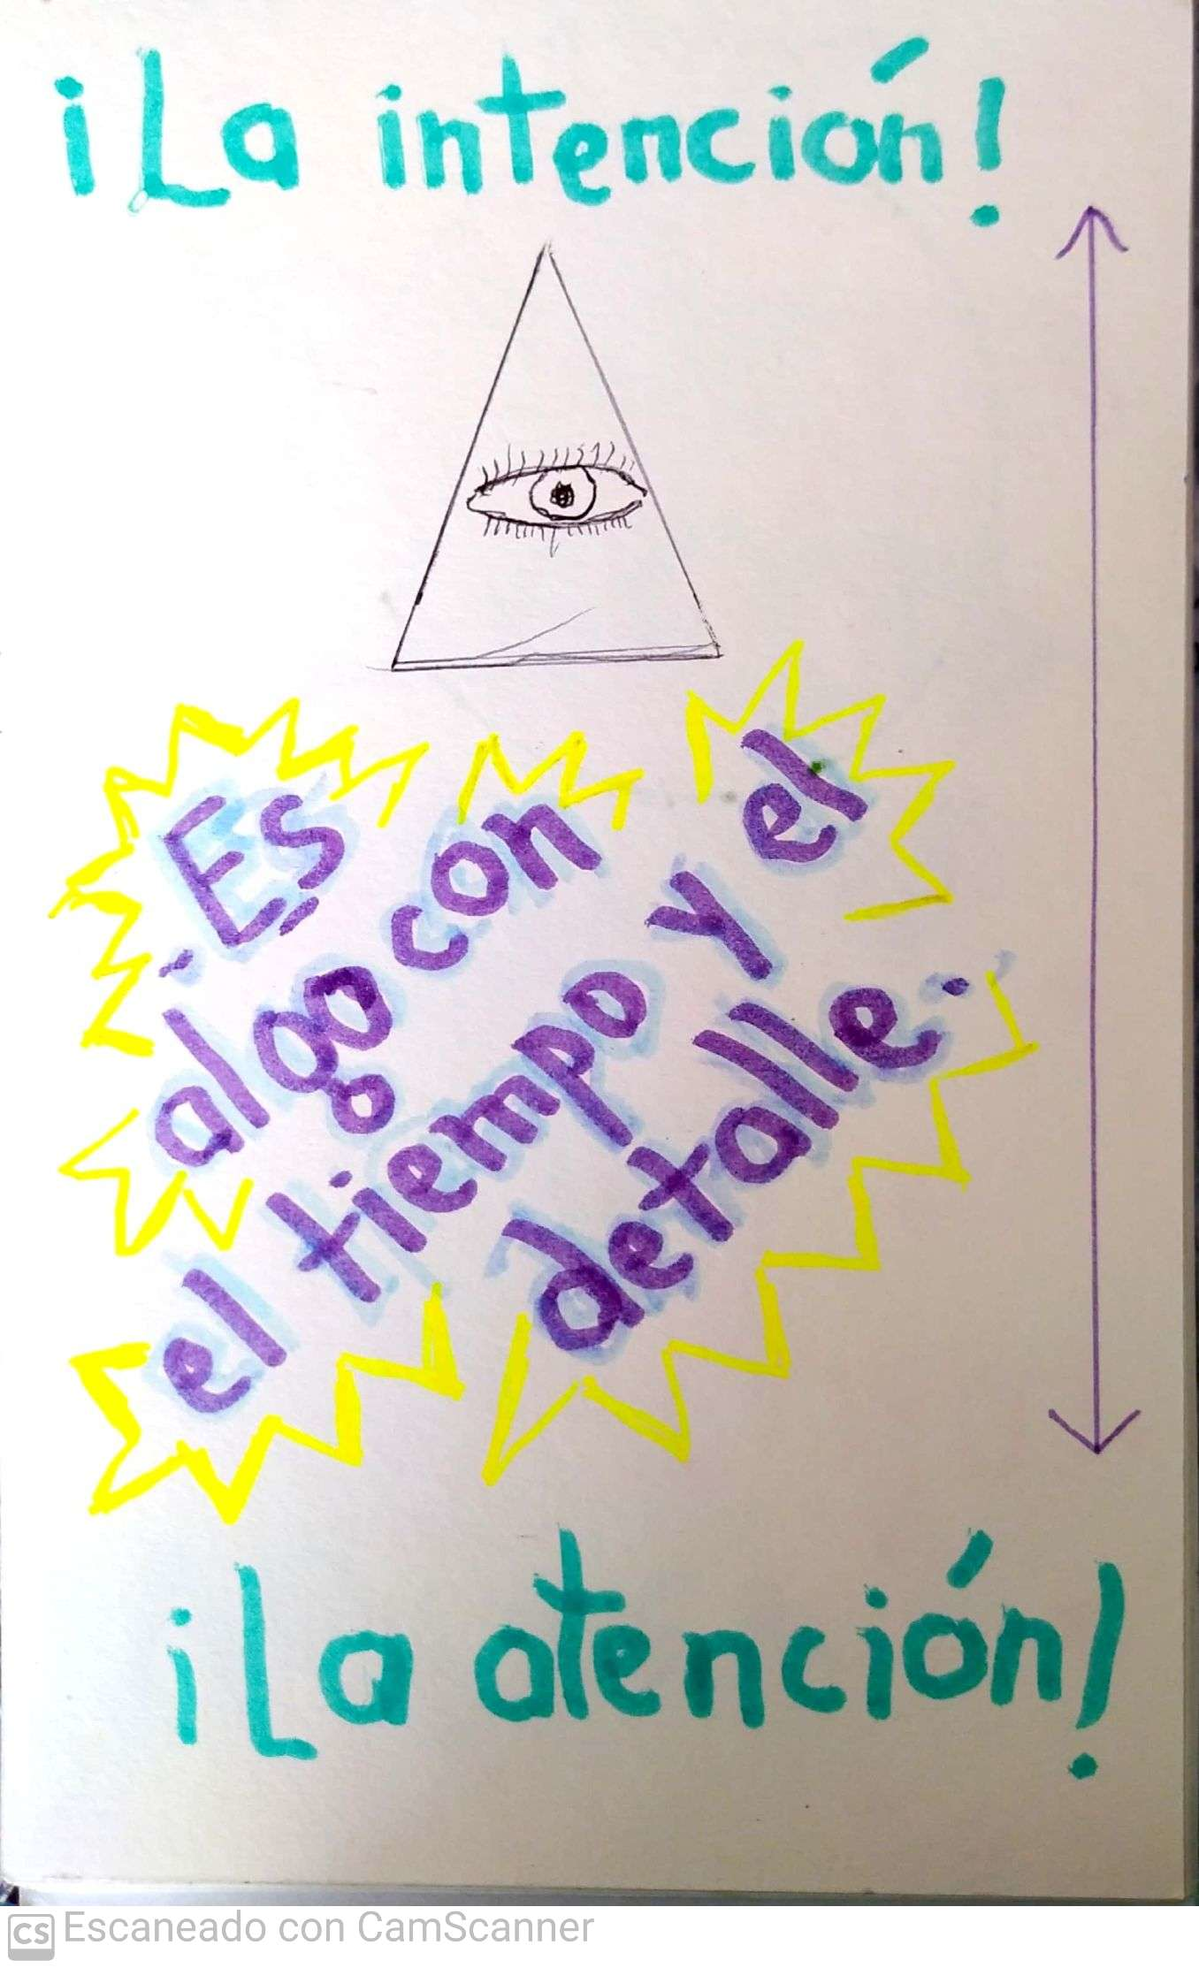 ¡La intención!
·Es
algo con
el tiempo y el
detalle·
¡La atención!
CS Escaneado con CamScanner